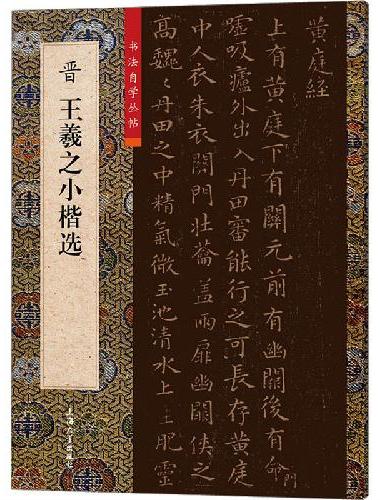 书法自学丛帖
晋 王羲之小楷选
上海书画出版社
黄庭經
上有黄庭下有關元前有幽關後有命門
嘘吸廬外出入丹田審能行之可長存黄庭
中人衣朱衣關門壮蘥盖兩扉幽關俠之
高魏魏丹田之中精氣微玉池清水上生肥靈